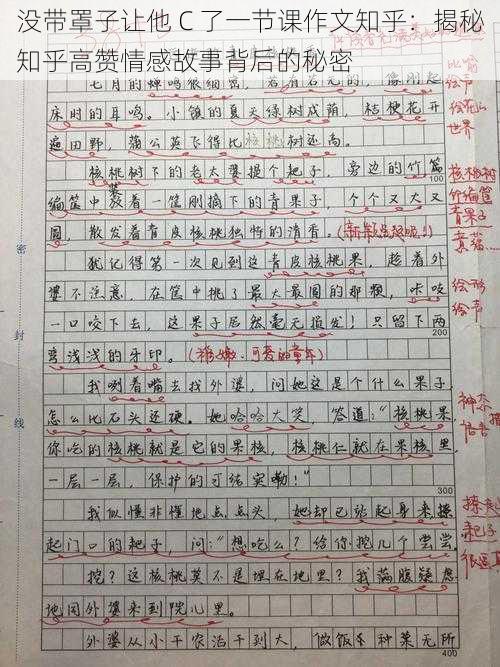 没带罩子让他 C 了一节课作文知乎：揭秘
知乎高赞情感故事背后的秘密
七月的蝉鸣很细密，若有若无的，像刚起
比喻
床时的耳鸣。小镇的夏天绿树成荫，桔梗花开
绘声
绘色
世界
遍田野，蒲公英飞得比核桃树还高。
核桃树下的老太婆摸个耙子，旁边的竹篇
核桃树
100
编筐中装着一筐刚摘下的青果子，个个又大又
竹编筐
密
圆，散发着青皮核桃独特的清香。
青果子
犹记得第一次见到这青皮核桃果，趁着外
婆不注意，在筐中挑了最大最圆的那颗，咔咬
绘形
绘声
封
一口咬下去，这果子居然毫无损发！只留下两
200
弯浅浅的牙印。（稚嫩、可爱的童年）
我咧着嘴去找外婆，问她这是个什么果子，
神态
线
怎么比石头还硬。她哈哈大笑，答道：“核桃果，
你吃的核桃就是它的果核，核桃仁就在果核里，
一层一层，保护的可结实嘞！”
300
我似懂非懂地点点头，她却已站起身来操
起门口的耙子，问：“想吃么？给你挖几个尝尝。
耙子
挖？这核桃莫不是埋在地里？我满腹疑虑
地同外婆来到院儿里。
外婆从小干农活干到大，做饭种菜无所
400